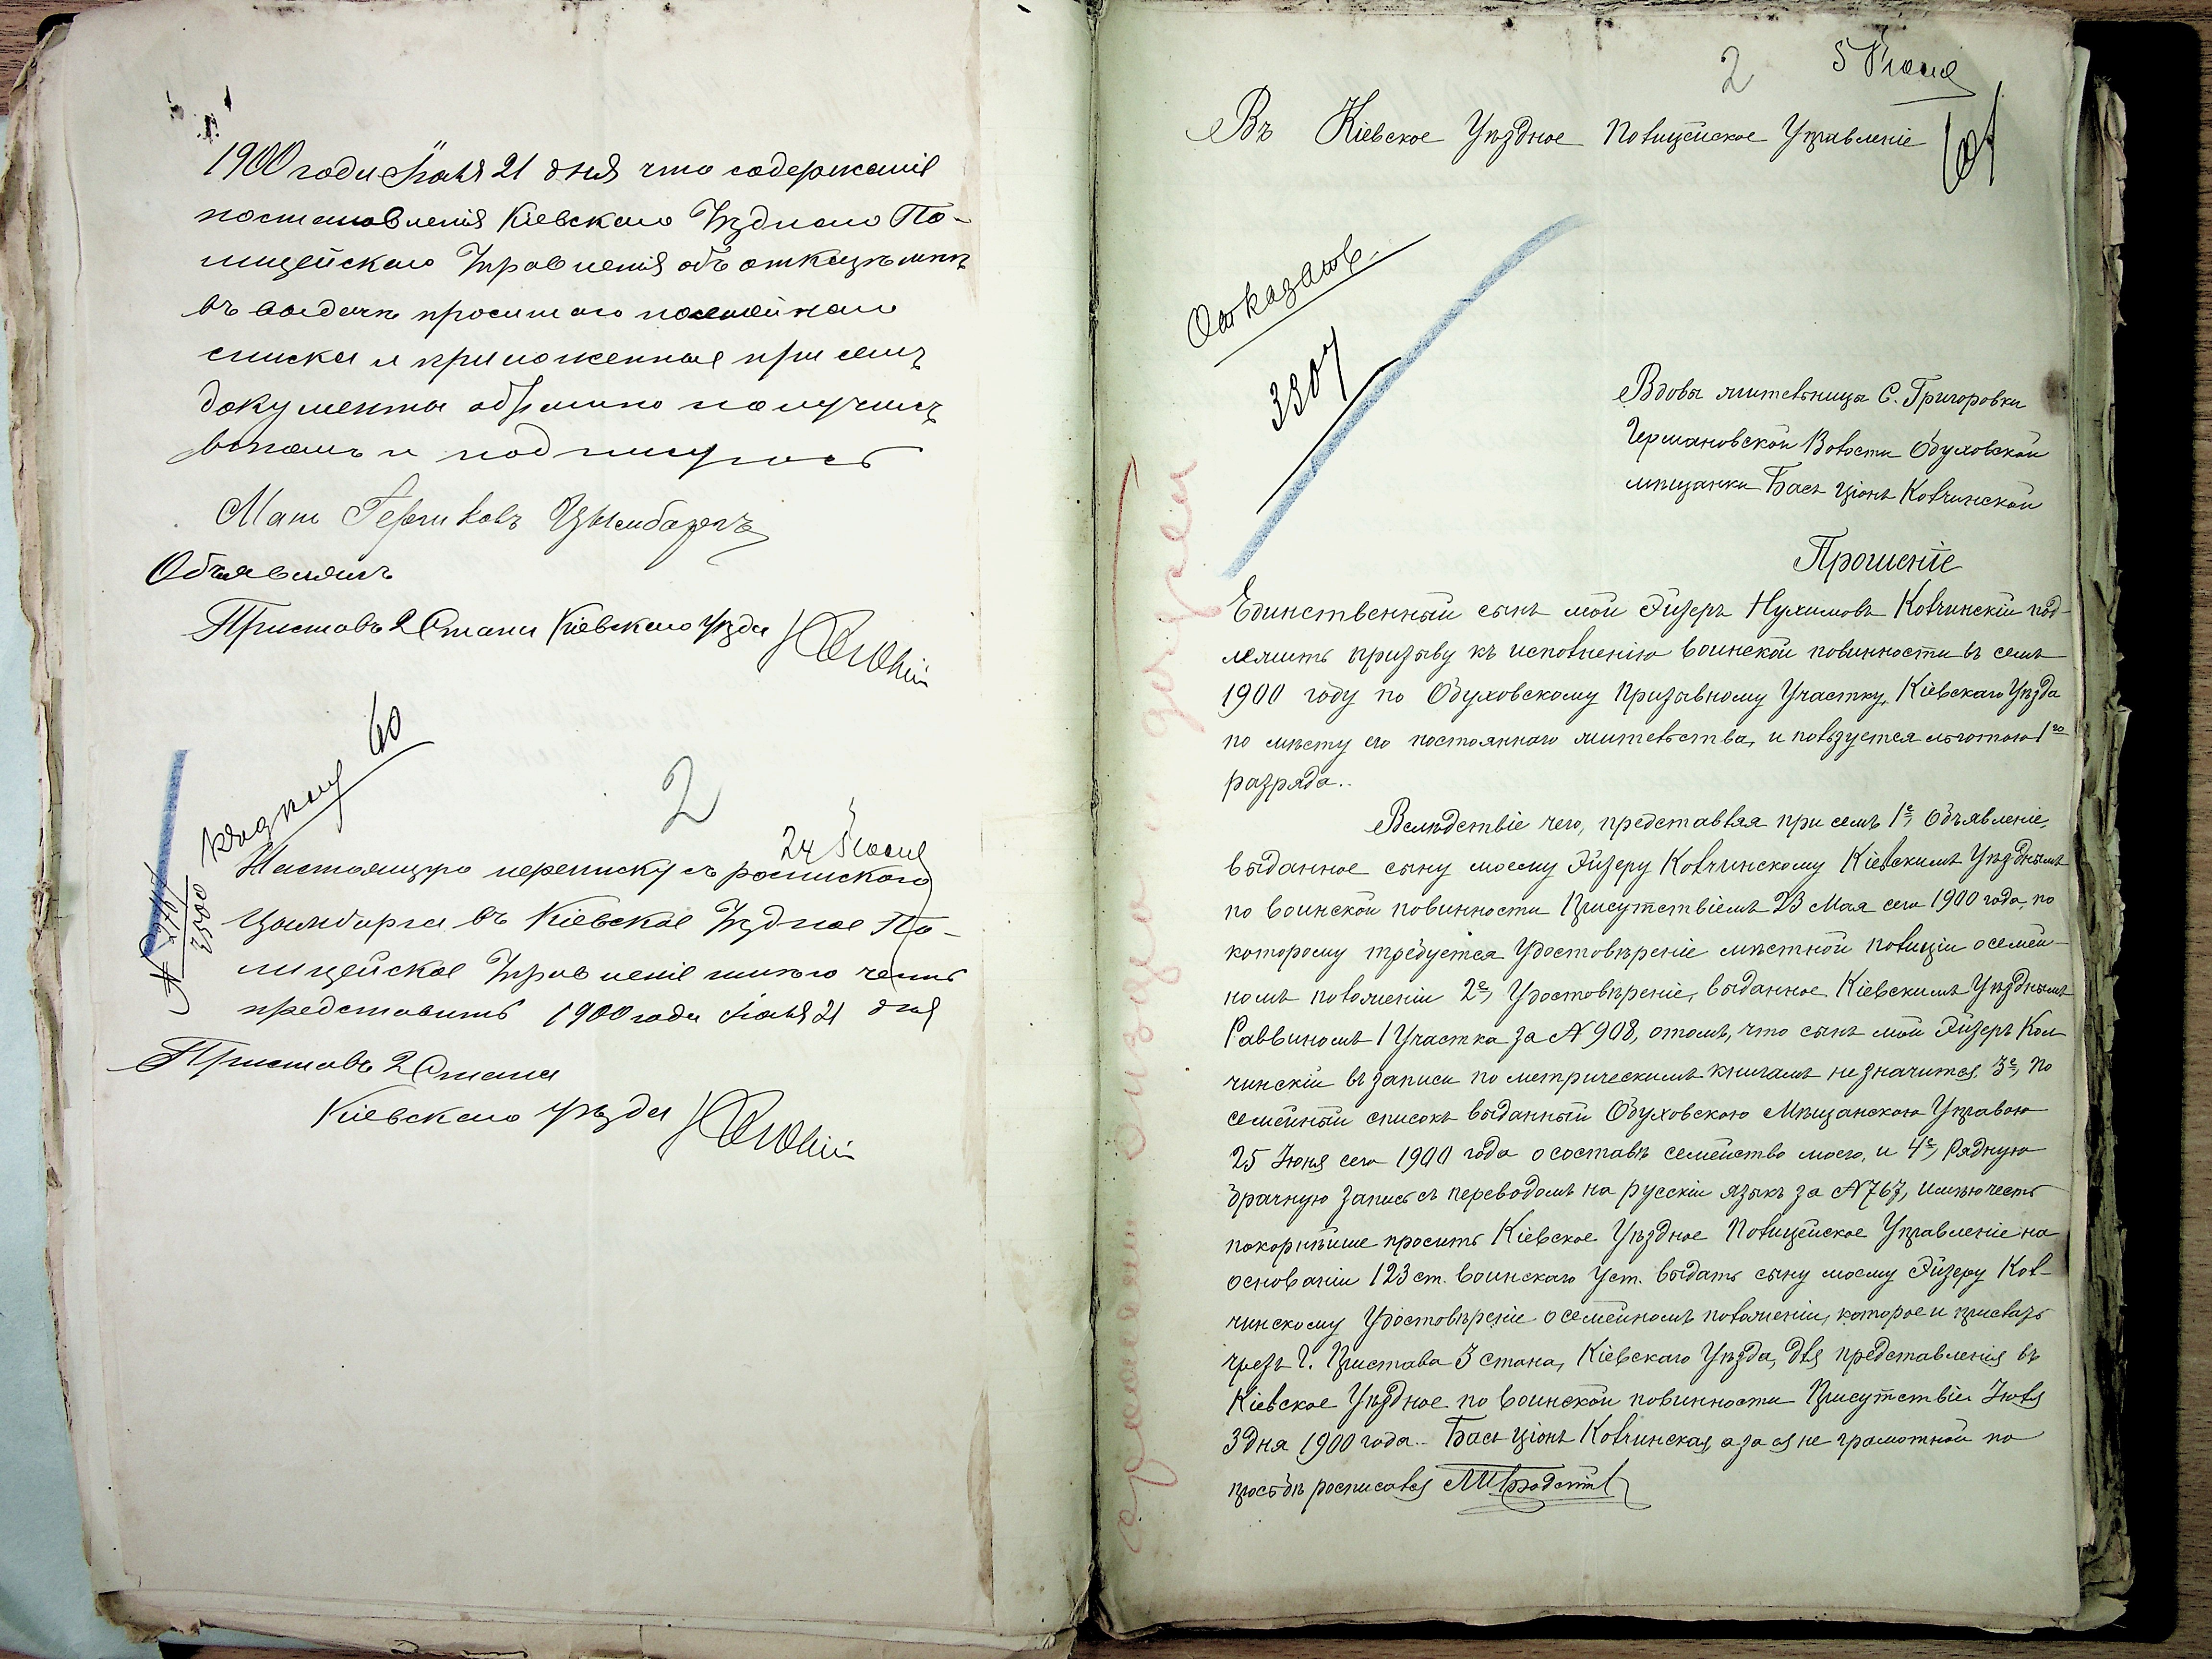 1900 года Іюля 21 дня что содержаніе
постановленія Кіевскаго Уѣзднаго По-
лицейскаго Управленія объ отказѣ мнѣ
въ выдачѣ просимаго посемейнаго
списка и приложенные при семъ
документы обратно получилъ
въ томъ и подписуюсь
Мат Герчиковъ Цымбаргъ
Объявилъ
Приставъ 2 Стана Кіевскаго уѣзда
60
2
24 Іюля
Настоящую переписку съ роспискою
Цымбарга въ Кіевское Уѣздное По-
лицейское Управленіе имѣю честь
представить 1900 года Іюля 21 дня
Приставъ 2 Стана
Кіевскаго уѣзда
2 5 Іюля
Въ Кіевское Уѣздное Полицейское Управленіе
61
Отказать.
3307
Вдовы жительницы С. Григоровки
Германовской Волости Обуховской
мѣщанки Бась Ціонъ Колчинской
Прошеніе
Единственный сынъ мой Эйзеръ Нухимовъ Колчинскій под-
лежитъ призыву къ исполненію воинской повинности въ семъ
1900 году по Обуховскому Призывному Участку, Кіевскаго Уѣзда
по мѣсту его постояннаго жительства, и пользуется льготою 1го
разряда..
Вслѣдствіе чего, представляя при семъ 1е, Объявленіе,
выданное сыну моему Эйзеру Колчинскому Кіевскимъ Уѣзднымъ
по воинской повинности Присутствіемъ 23 Мая сего 1900 года, по
которому требуется Удостовѣреніе мѣстной полиціи о семей-
номъ положеніи 2е, Удостовѣреніе, выданное Кіевскимъ Уѣзднымъ
Раввиномъ 1 Участка за № 908, о томъ, что сынъ мой Эйзеръ Кол-
чинскій въ записи по метрическимъ книгамъ не значится, 3е, По
семейный списокъ выданный Обуховскою Мѣщанскою Управою
25 Іюня сего 1900 года о составѣ семейство моего, и 4е, Рядную
брачную запись съ переводомъ на русскій языкъ за № 767, имѣю честь
покорнѣйше просить Кіевское Уѣздное Полицейское Управленіе на
основаніи 123 ст. воинскаго Уст. выдать сыну моему Эйзеру Кол-
чинскому Удостовѣреніе о семейномъ положеніи, которое и прислать
чрезъ Г. Пристава 3 стана, Кіевскаго Уѣзда, для представленія въ
Кіевское Уѣздное по воинской повинности Присутствіе Іюля
3 дня 1900 года.. Бась Ціонъ Колчинская, а за ея не грамотной по
просьбѣ росписался